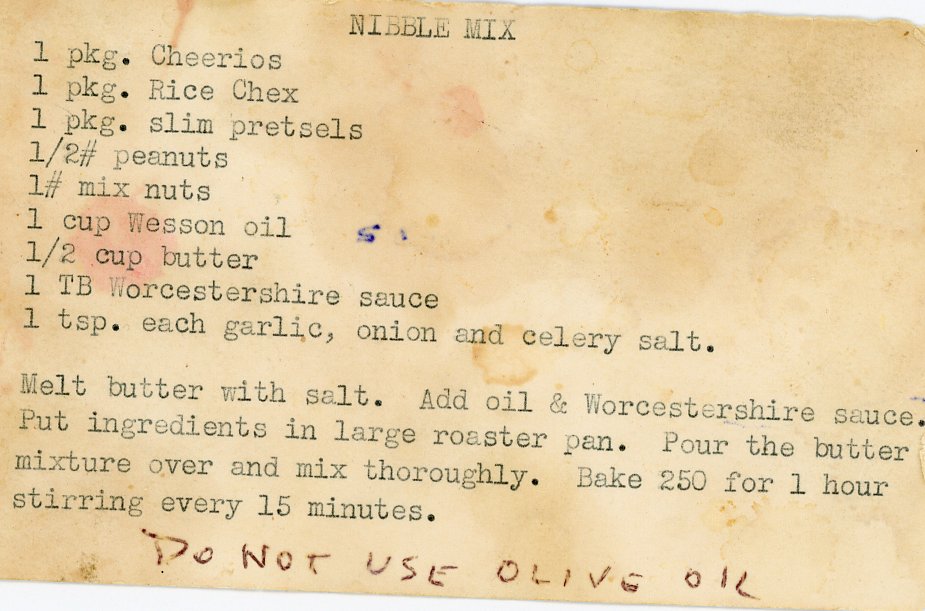 NIBBLE MIX
1 pkg. Cheerios
1 pkg. Rice Chex
1 pkg. slim pretsels
1/2# peanuts
1# mix nuts
1 cup Wesson oil
1/2 cup butter
1 TB Worcestershire sauce
1 tsp. each garlic, onion and celery salt.
Melt butter with salt. Add oil & Worcestershire sauce.
Put ingredients in large roaster pan. Pour the butter
mixture over and mix thoroughly. Bake 250 for 1 hour
stirring every 15 minutes.
DO NOT USE OLIVE OIL